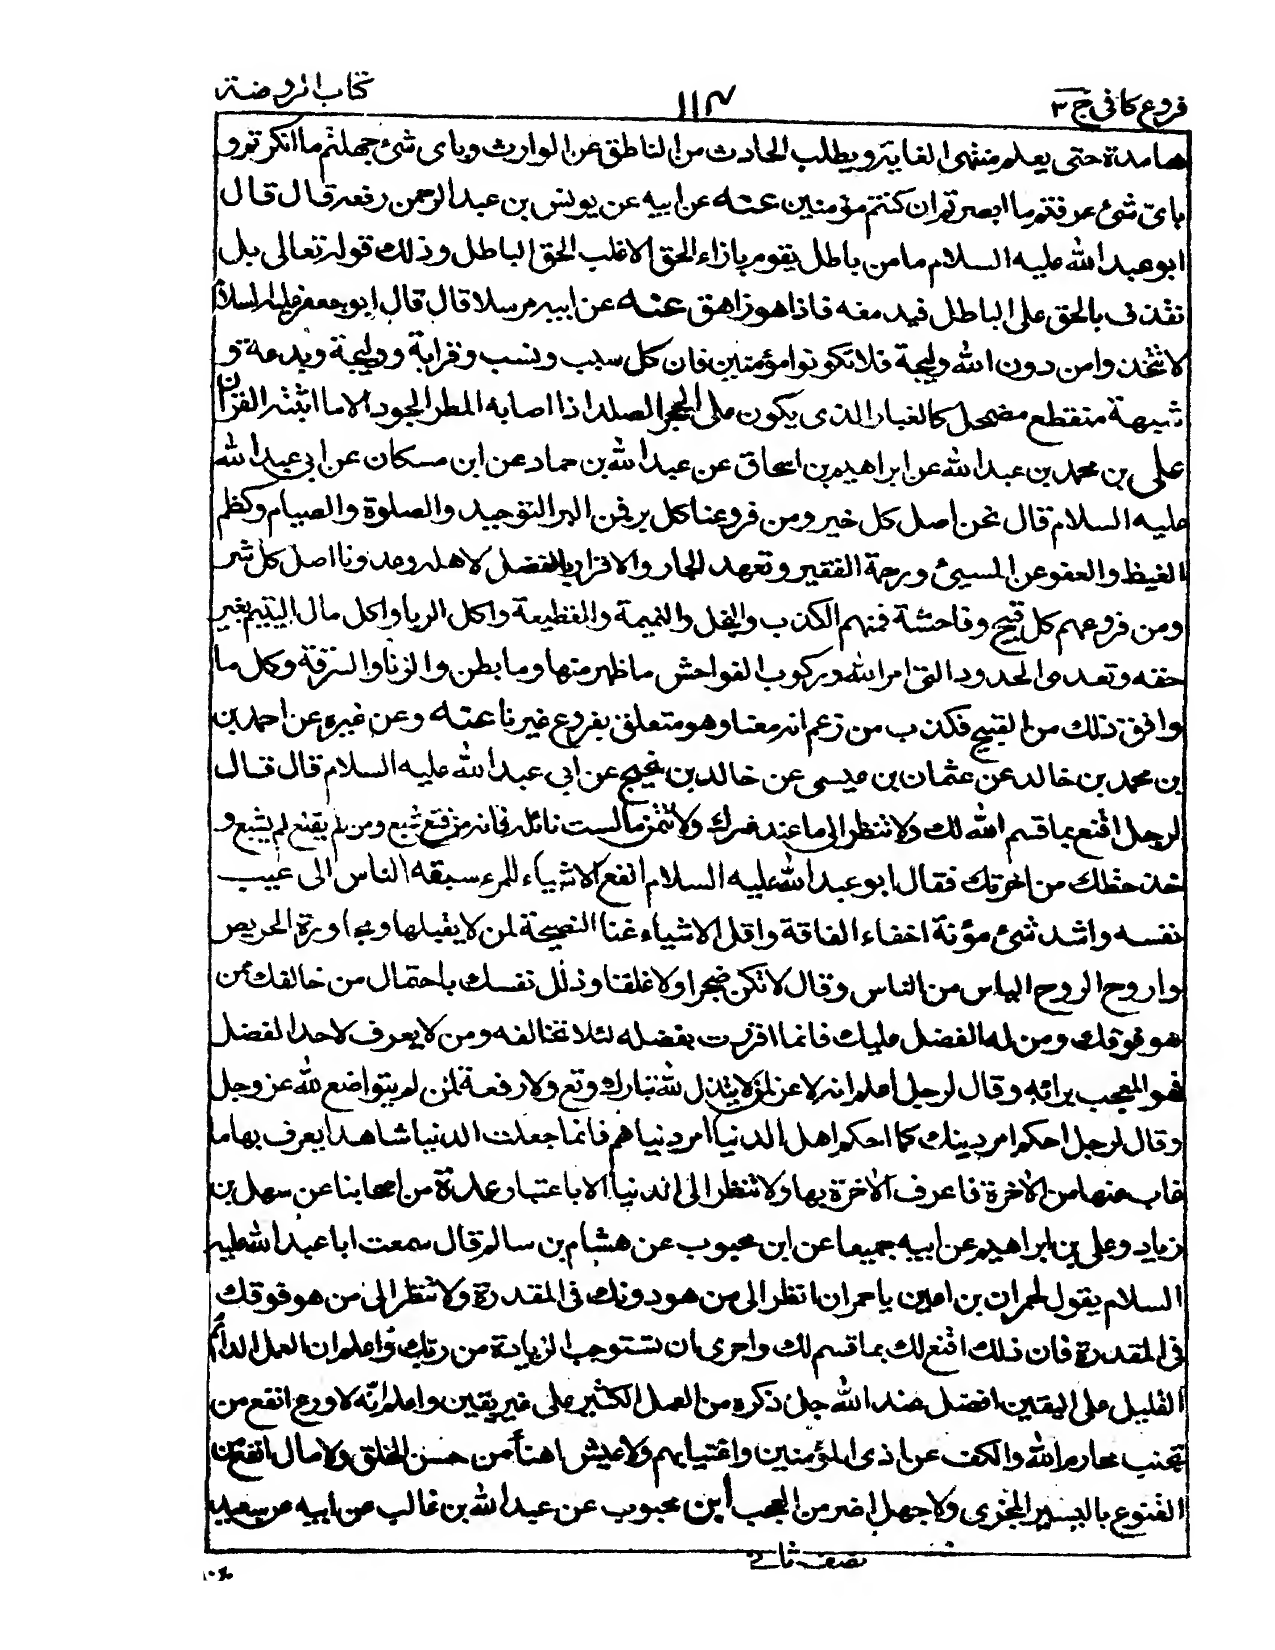 فروع کافی ج ۳
۱۱۴
کتاب الروضة
هامدة حتى يعلم منتهى الغاية ويطلب الحادث من الناطق عن الوارث وباى شئ جهلتم ما انكرتم و
باىّ شئ عرفتم ما ابصرتم ان كنتم مؤمنين عنه عن ابيه عن يونس بن عبد الرحمن رفعه قال قال
ابو عبد الله عليه السلام ما من باطل يقوم بازاء الحق الا غلب الحق الباطل وذلك قوله تعالى بل
نقذف بالحق على الباطل فيدمغه فاذا هو زاهق عنه عن ابيه مرسلا قال قال ابو جعفر عليه السلام
لا تتخذوا من دون الله وليجة فلا تكونوا مؤمنين فان كل سبب ونسب وقرابة ووليجة وبدعة و
شبهة منقطع مضمحل كالغبار الذى يكون على الحجر الصلد اذا اصابه المطر الجود الا ما اثبته القرآن
على بن محمد بن عبد الله عن ابراهيم بن اسحاق عن عبد الله بن حماد عن ابن مسكان عن ابى عبد الله
عليه السلام قال نحن اصل كل خير ومن فروعنا كل بر فمن البر التوحيد والصلوة والصيام وكظم
الغيظ والعفو عن المسيئ ورحمة الفقير وتعهد الجار والاقرار بالفضل لاهله وعدونا اصل كل شر
ومن فروعهم كل قبيح وفاحشة فمنهم الكذب والبخل والنميمة والقطيعة واكل الربا واكل مال اليتيم بغير
حقه وتعدى الحدود التى امر الله وركوب الفواحش ما ظهر منها وما بطن والزنا والسرقة وكل ما
وافق ذلك من القبيح فكذب من زعم انه معنا وهو متعلق بفروع غيرنا عنه وعن غيره عن احمد بن
بن محمد بن خالد عن عثمان بن عيسى عن خالد بن نجيح عن ابى عبد الله عليه السلام قال قال
لرجل اقنع بما قسم الله لك ولا تنظر الى ما عند غيرك ولا تتمن ما لست نائله فانه من قنع شبع ومن لم يقنع لم يشبع و
خذ حظك من اخرتك فقال ابو عبد الله عليه السلام انفع الاشياء للمرء سبقه الناس الى عيب
نفسه واشد شئ مؤنة اخفاء الفاقة واقل الاشياء غنا النصيحة لمن لا يقبلها ومجاورة الحريص
واروح الروح الياس من الناس وقال لا تكن ضجرا ولا غلقا وذلل نفسك باحتمال من خالفك ممن
هو فوقك ومن له الفضل عليك فانما اقررت بفضله لئلا تخالفه ومن لا يعرف لاحد الفضل
فهو المعجب برائه وقال لرجل اعلم انه لا عز لمن لا يتذلل لله تبارك وتع ولا رفعة لمن لم يتواضع لله عز وجل
وقال لرجل احكم امر دينك كما احكم اهل الدنيا امر دنياهم فانما جعلت الدنيا شاهدا يعرف بها ما
غاب عنها من الآخرة فاعرف الآخرة بها ولا تنظر الى الدنيا الا باعتبار عدة من اصحابنا عن سهل بن
زياد وعلى بن ابراهيم عن ابيه جميعا عن ابن محبوب عن هشام بن سالم قال سمعت ابا عبد الله عليه
السلام يقول لحمران بن اعين يا حمران انظر الى من هو دونك فى المقدرة ولا تنظر الى من هو فوقك
فى المقدرة فان ذلك اقنع لك بما قسم لك واحرى ان تستوجب الزيادة من ربك واعلم ان العمل الدائم
القليل على اليقين افضل عند الله جل ذكره من العمل الكثير على غير يقين واعلم انّه لا ورع انفع من
تجنب محارم الله والكف عن اذى المؤمنين واغتيابهم ولا عيش اهنأ من حسن الخلق ولا مال انفع من
القنوع باليسير المجزى ولا جهل اضر من العجب ابن محبوب عن عبد الله بن غالب عن ابيه عن سعيد
نصف ثانى